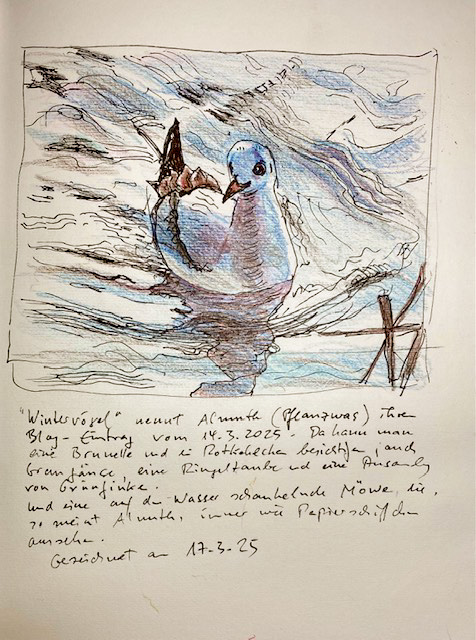 "Wintervögel" nennt Almuth (Pflanzwas) ihren
Blog-Eintrag vom 14.3.2025. Da kann man
eine Brunelle und ein Rotkehlchen besichtigen, auch
Graugänse, eine Ringeltaube und eine Ansamlg
von Grünfinken.
Und eine auf dem Wasser schaukelnde Möwe, die,
so meint Almuth, immer wie Papierschiffchen
aussehen.
Gezeichnet am 17-3-25